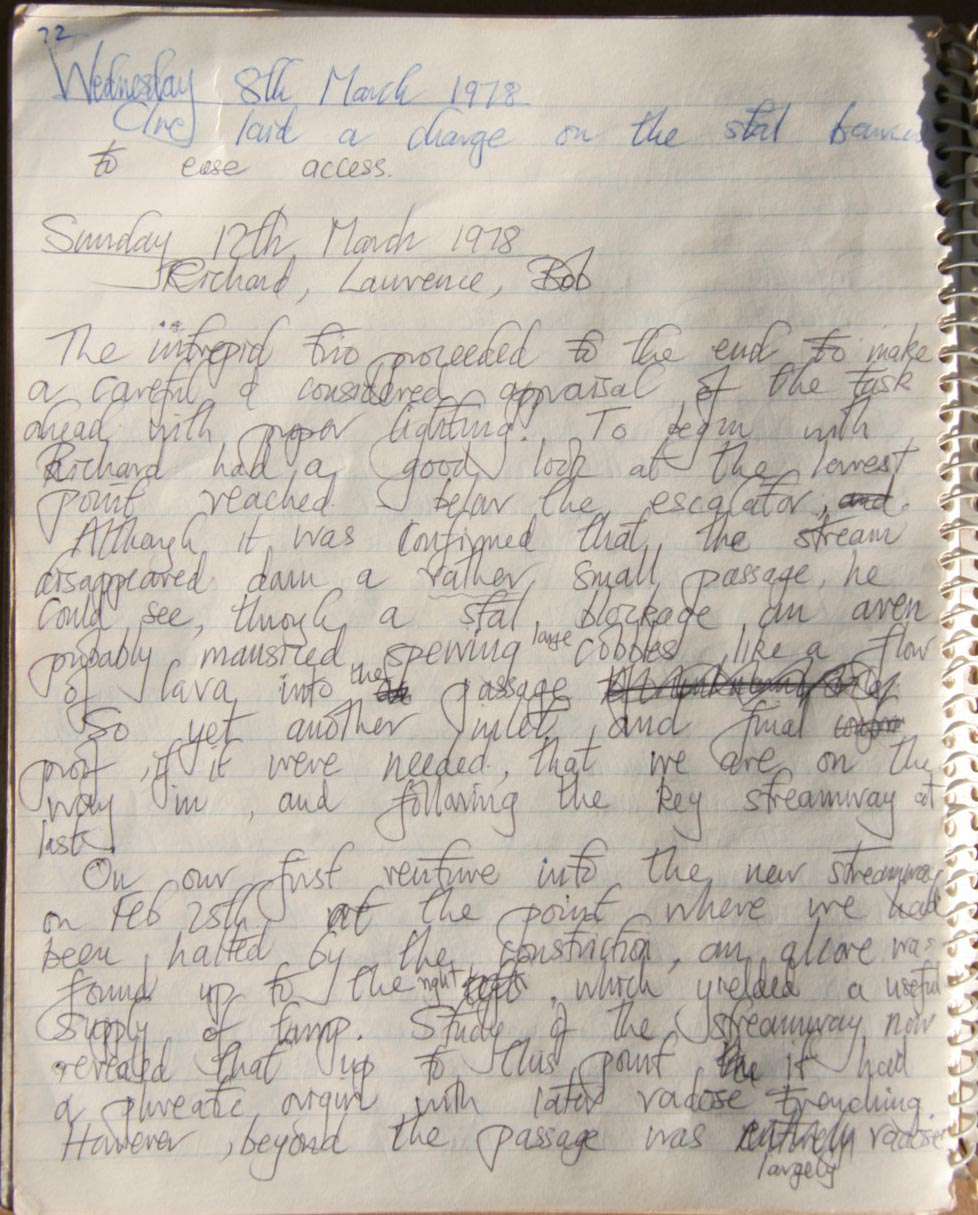 72
Wednesday 8th March 1978
Clive laid a charge on the stal
to ease access.
Sunday 12th March 1978
Richard, Laurence, Bob
The intrepid trio proceeded to the end to make
a careful & considered appraisal of the task
ahead with proper lighting! To begin with
Richard had a good look at the lowest
point reached below the escalator, and.
Although it was confirmed that the stream
disappeared down a rather small passage, he
could see, through a stal blockage an aven
probably mansized spewing large cobbles like a flow
of lava into the passage
So yet another inlet, and final
proof, if it were needed, that we are on the
way in, and following the key streamway at
last.
On our first venture into the new streamway
on Feb 25th, at the point where we had
been halted by the constriction, an alcove was
found up to the right, which yielded a useful
supply of tamp. Study of the streamway now
revealed that up to this point the it had
a phreatic origin with later vadose trenching.
However, beyond the passage was entirely vadose
largely